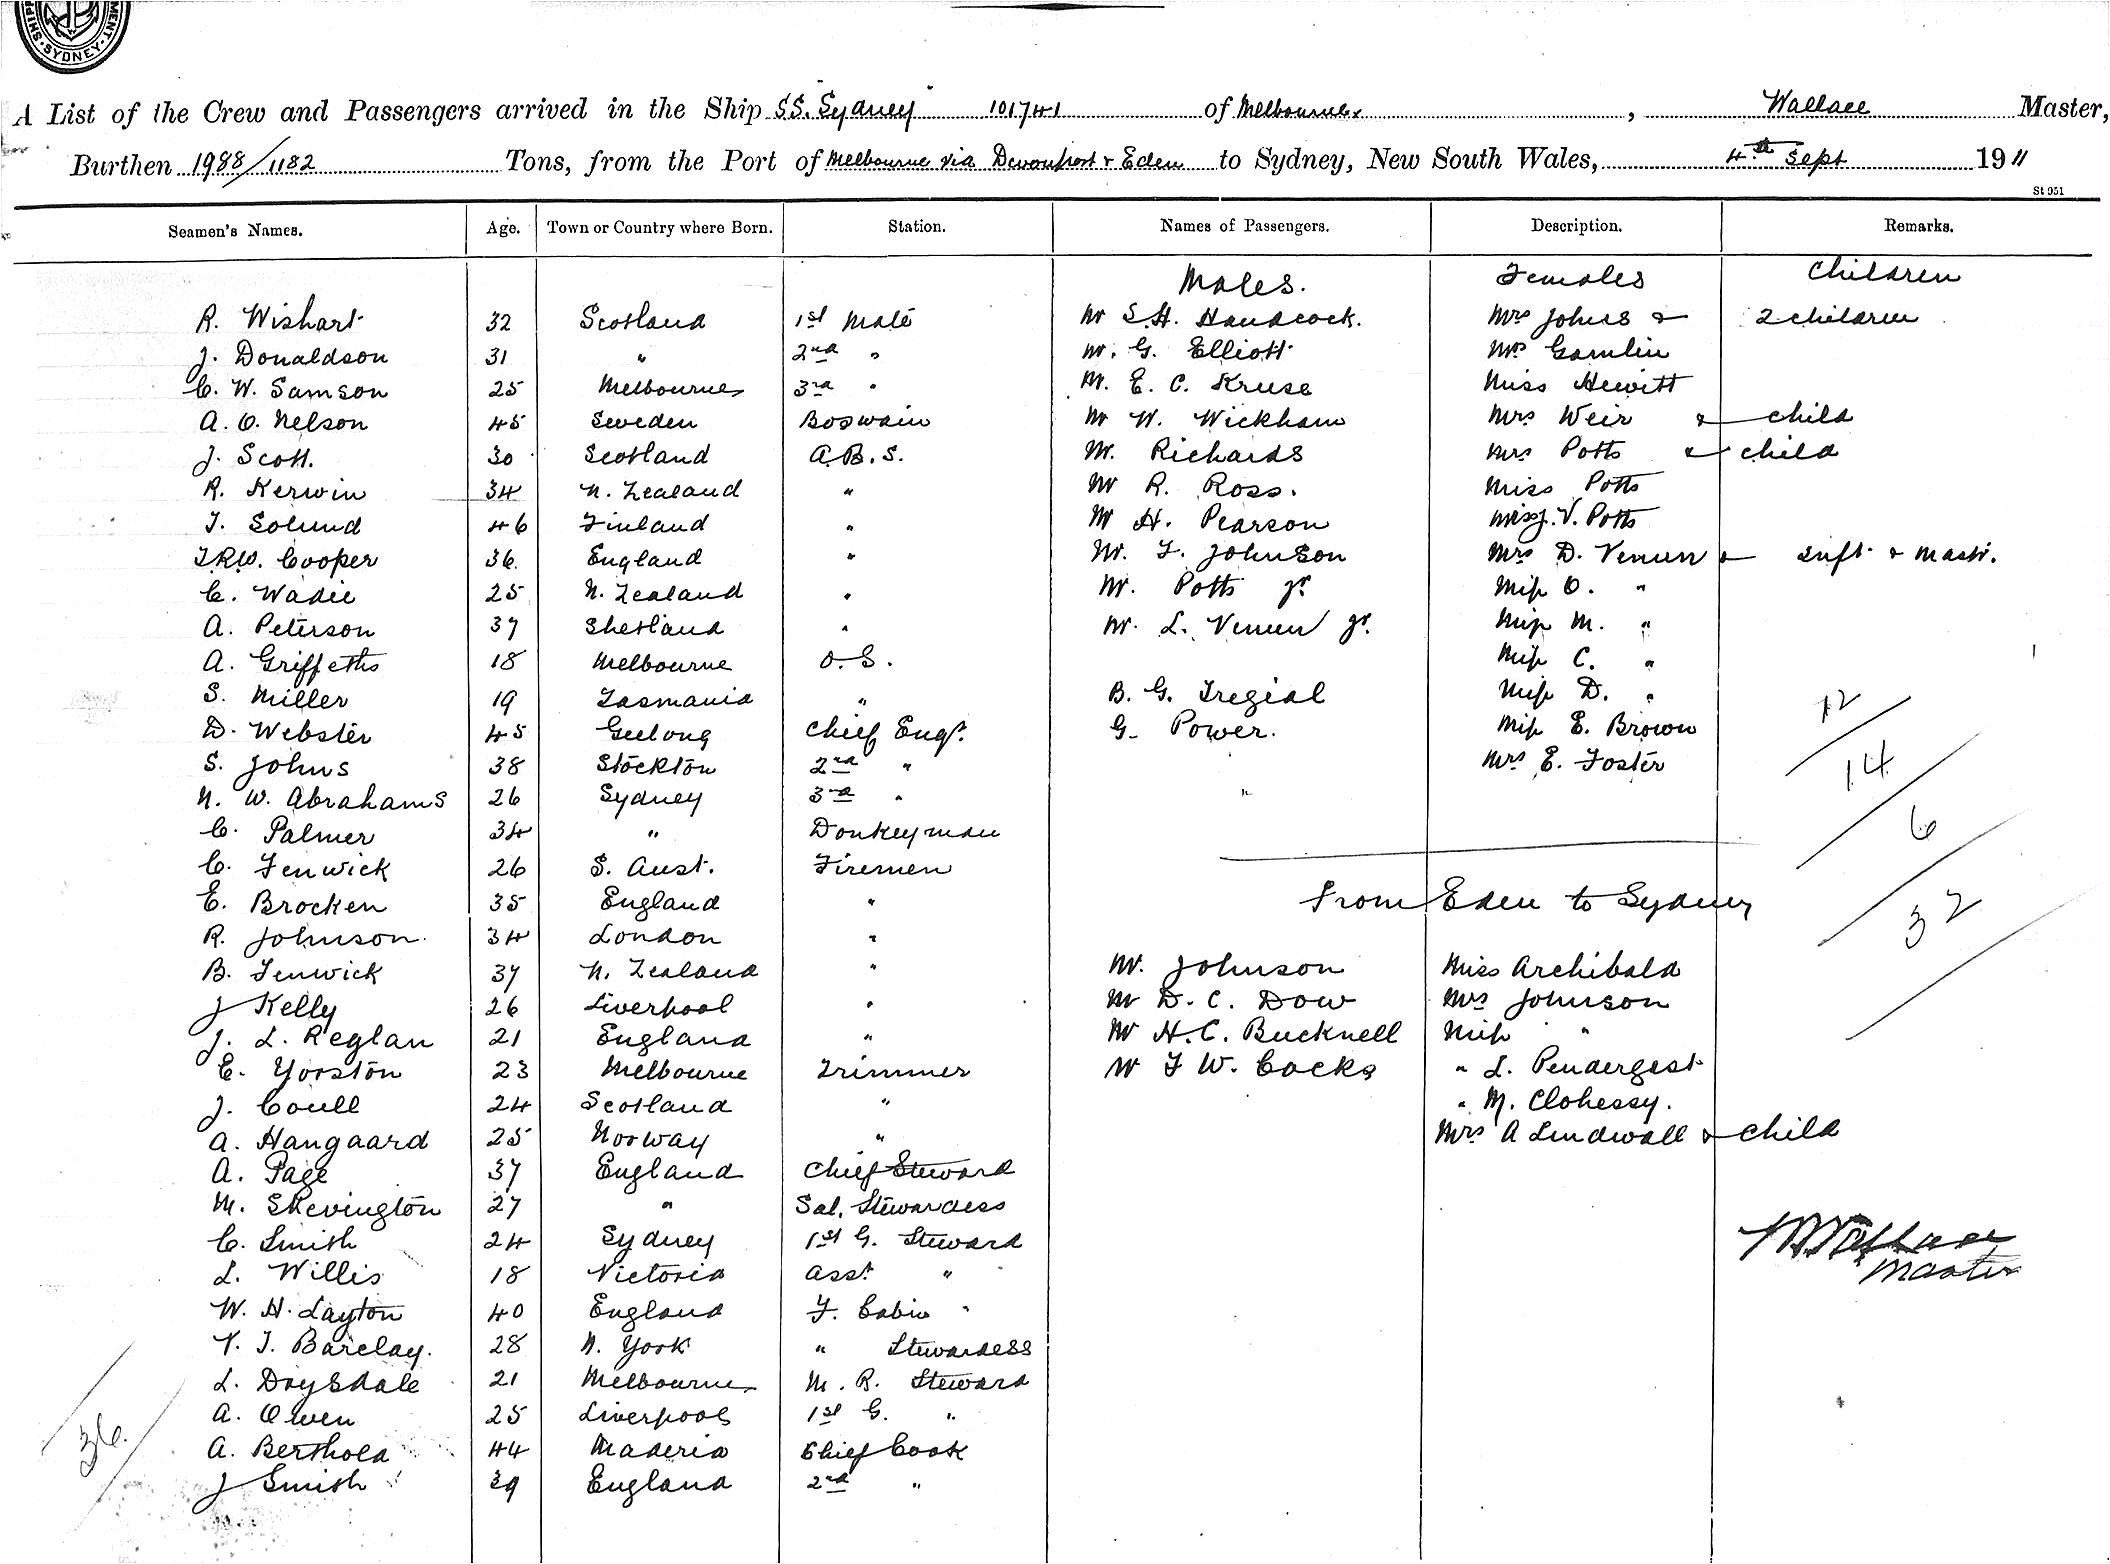 SHIPPING SYDNEY MENT
A List of the Crew and Passengers arrived in the Ship S.S. Sydney 101741 of Melbourne, Wallace Master,
Burthen 1988/1182 Tons, from the Port of Melbourne via Devonport & Eden to Sydney, New South Wales, 4th Sept 1911
St 951
Seamen's Names. Age. Town or Country where Born. Station. Names of Passengers. Description. Remarks.
Males. Females Children
R. Wishart 32 Scotland 1st Mate Mr S.H. Handcock. Mrs Johns & 2 children
J. Donaldson 31 " 2nd " Mr. G. Elliott Mrs Gamlin
C. W. Samson 25 Melbourne 3rd " Mr. E. C. Kruse Miss Hewitt
A. O. Nelson 45 Sweden Boswain Mr W. Wickham Mrs Weir & child
J. Scott. 30 Scotland A.B.S. Mr. Richards Mrs Potts & child
R. Kerwin 34 N. Zealand " Mr R. Ross. Miss Potts
T. Solund 46 Finland " Mr H. Pearson Miss J. V. Potts
T.R.W. Cooper 36. England " Mr. F. Johnson Mrs D. Venun & Inft. & Mastr.
C. Wadie 25 N. Zealand " Mr. Potts jr. Miss O. "
A. Peterson 37 Shetland " Mr. L. Venun jr. Miss M. "
A. Griffeths 18 Melbourne O.S. Miss C. "
S. Miller 19 Tasmania " B. G. Tregial Miss D. "
D. Webster 45 Geelong Chief Engr. G. Power. Miss E. Brown 12
S. Johns 38 Stockton 2nd " Mrs E. Foster 14
N. W. Abrahams 26 Sydney 3rd " "
C. Palmer 34 " Donkeyman 6
C. Fenwick 26 S. Aust. Firemen
E. Brocken 35 England " From Eden to Sydney 32
R. Johnson. 34 London "
B. Fenwick 37 N. Zealand " Mr. Johnson Miss Archibald
J Kelly 26 Liverpool " Mr D. C. Dow Mrs Johnson
J. L. Reglan 21 England " Mr H. C. Bucknell Miss "
E. Yorston 23 Melbourne Trimmer Mr F W. Cocks " L. Pendergast
J. Coull 24 Scotland " " M. Clohessy.
A. Hangaard 25 Norway " Mrs A Lindwall & child
A. Page 37 England Chief Steward
M. Skevington 27 " Sal. Stewardess
C. Smith 24 Sydney 1st G. Steward
L. Willis 18 Victoria Asst. "
W. H. Layton 40 England F. Cabin "
V. T. Barclay. 28 N. York " Stewardess
L. Drysdale 21 Melbourne M. R. Steward
A. Owen 25 Liverpool 1st G. "
A. Berthold 44 Maderia Chief Cook
J Smith 39 England 2nd "
Wallace
Master
36.